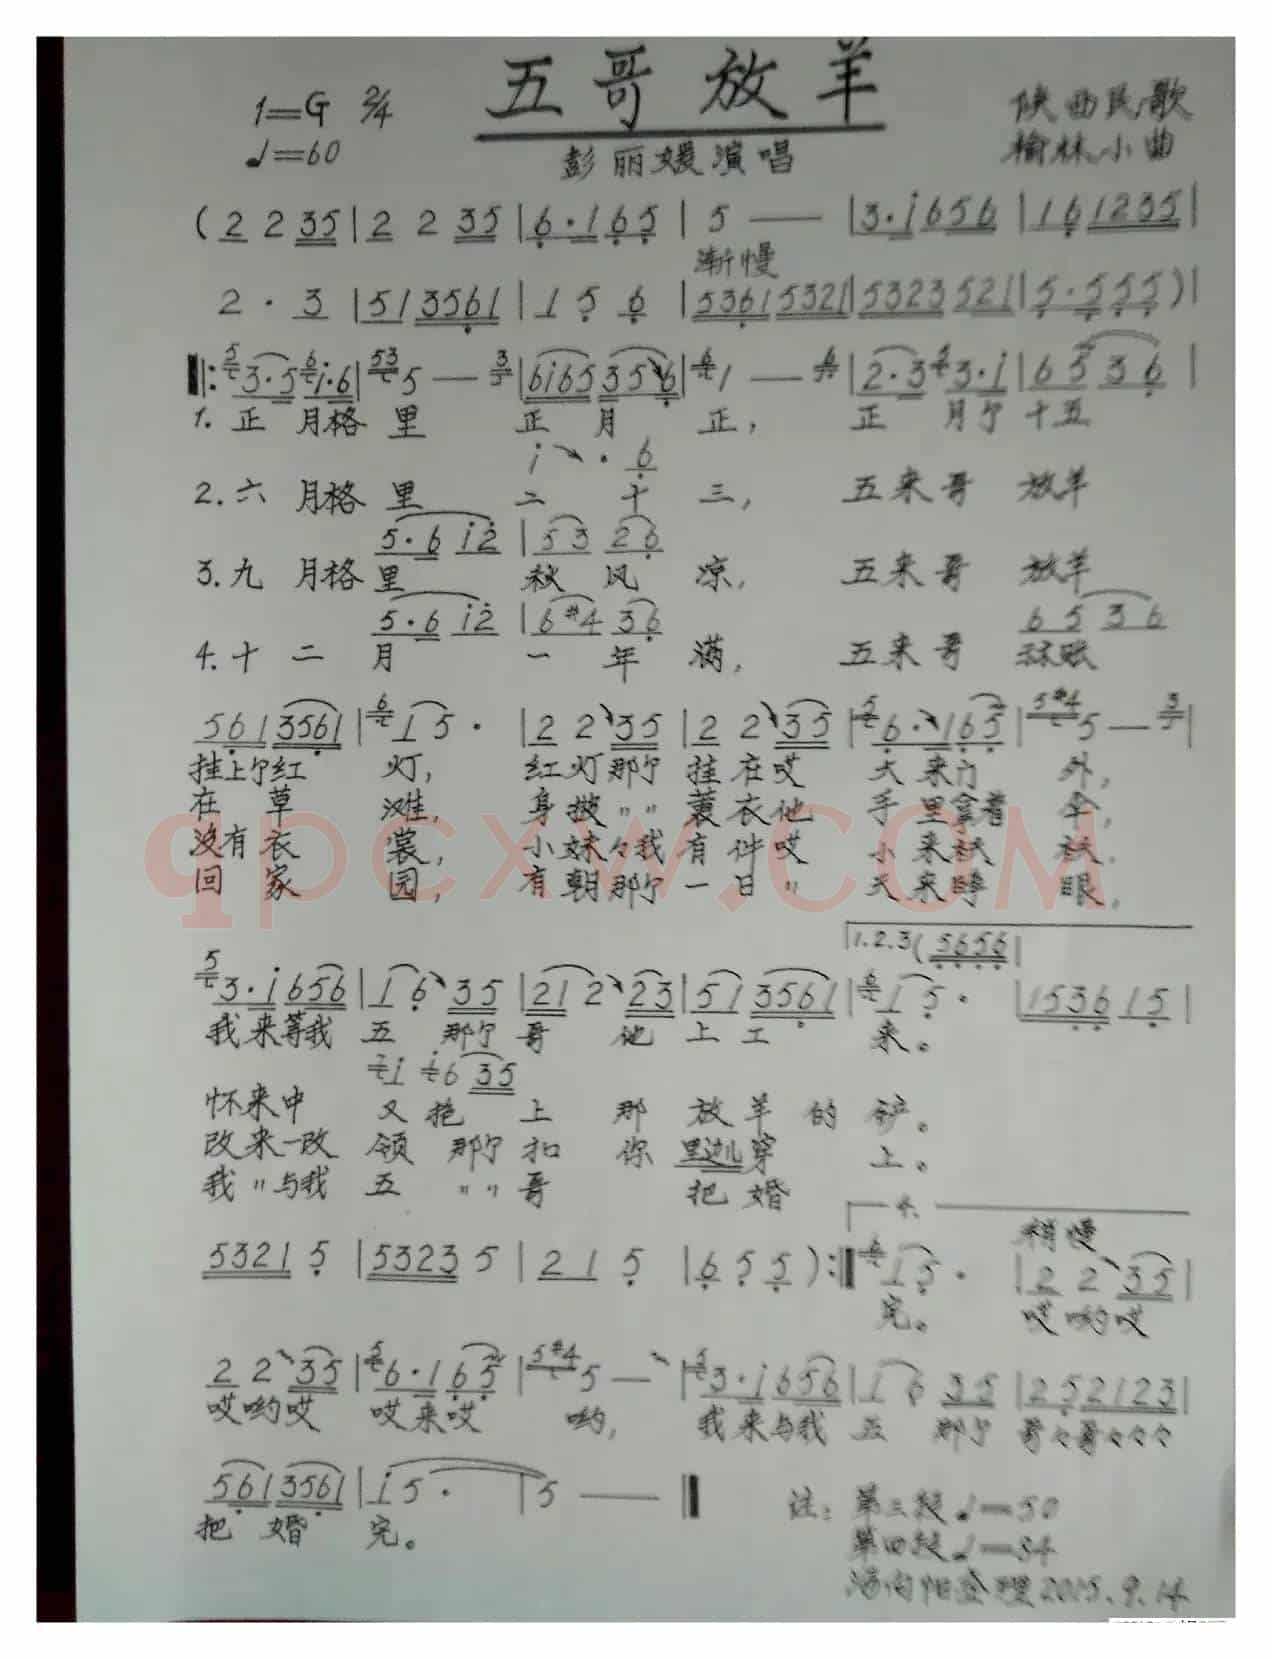 五哥放羊
1=G 2/4
♩=60
彭丽媛演唱
陕西民歌
榆林小曲
(2 2 35|2 2 35|6·165|5 —|3·i656|161235|
渐慢
2· 3|513561|1 5 6|53615321|5323521|5·555)|
3·5i·6|5 —|6i65356|1 —|2·33·i|6536|
1. 正月格里 正月正, 正月个十五
i · 6
2. 六月格里 二十三, 五来哥放羊
5·6 i2|53 26
3. 九月格里 秋风凉, 五来哥放羊
5·6 i2|6#4 36 65 36
4. 十二月 一年满, 五来哥
5613561|15·|2 2 35|2 2 35|6·165|5 —|
挂上个红灯, 红灯那个挂在哎大来门外,
在草滩, 身披〃〃蓑衣他手里拿着伞,
没有衣裳, 小妹々我有件哎小来袄袄.
回家园, 有朝那个一日〃天来睁眼,
1.2.3(5656|
3·i656|16 35|212 23|513561|15·|153615|
我来等我五那个哥他上工来。
i 6 35
怀来中又抱上那放羊的铲。
改来一改领那个扣你里边儿穿上。
我〃与我五〃〃哥 把婚
4.
稍慢
5321 5|5323 5|2 1 5|6 5 5):|15·|2 2 35|
完。 哎哟哎
2 2 35|6·165|5 —|3·i656|16 35|252123|
哎哟哎 哎来哎哟, 我来与我五那个哥々哥々々々
5613561|i5·|5 —
把婚完。
注: 第三段♩=50
第四段♩=54
整理2015.9.14
qpcxw.com